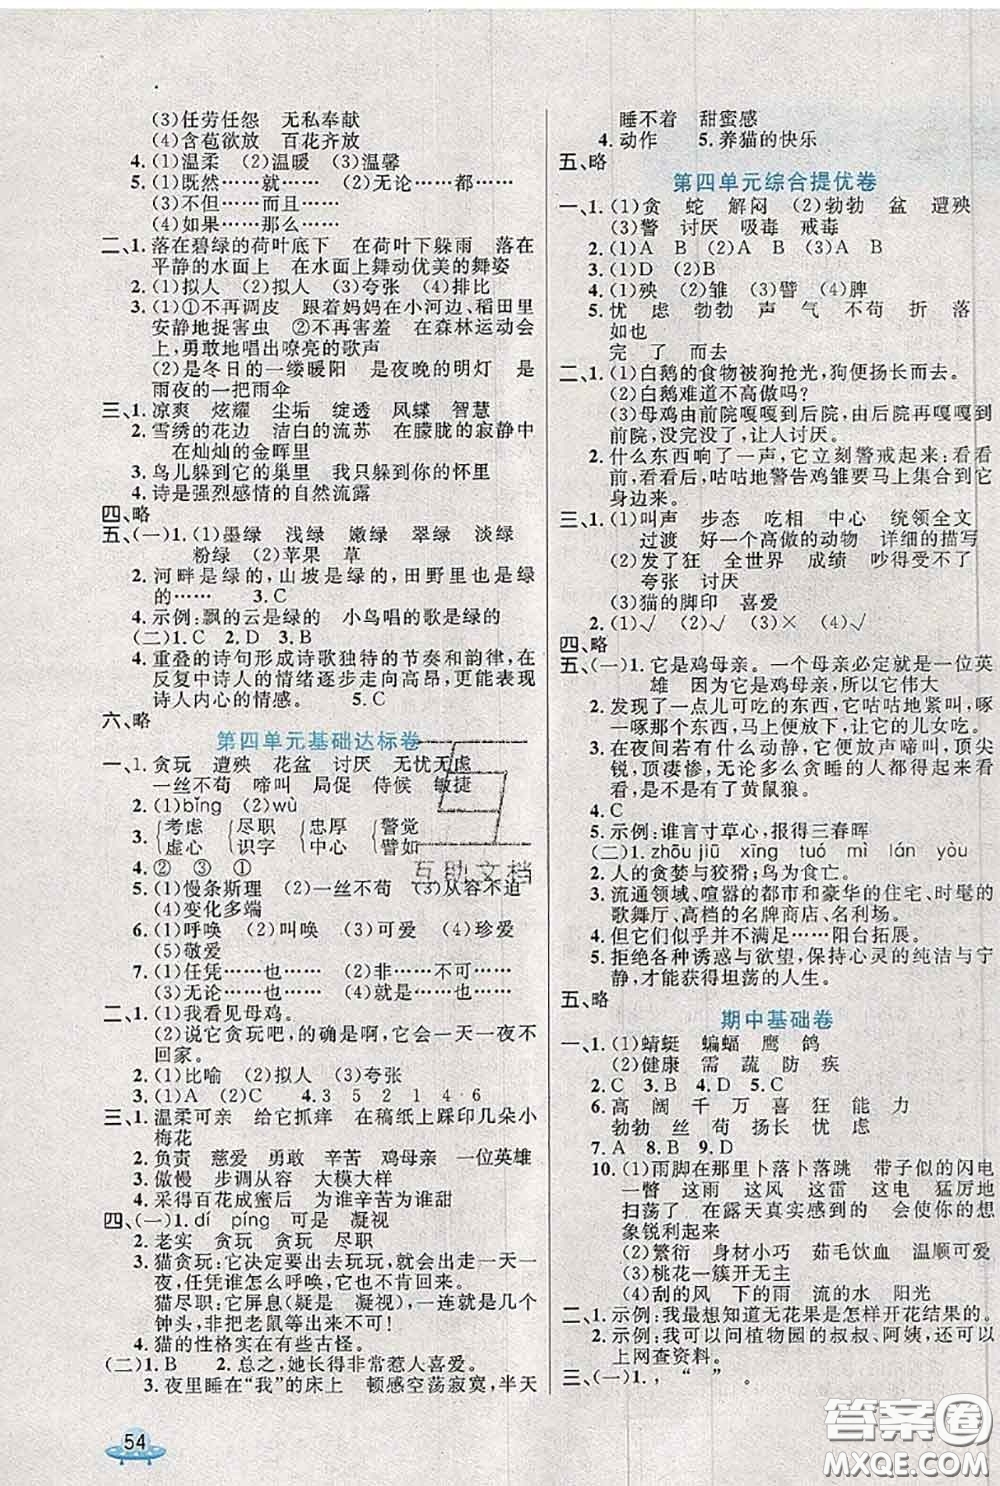 (3)任劳任怨　无私奉献
(4)含苞欲放　百花齐放
4. (1)温柔　(2)温暖　(3)温馨
5. (1)既然……就……　(2)无论……都……
(3)不但……而且……
(4)如果……那么……
二、1. 落在碧绿的荷叶底下　在荷叶下躲雨　落在
平静的水面上　在水面上舞动优美的舞姿
2. (1)拟人　(2)拟人　(3)夸张　(4)排比
3. (1)①不再调皮　跟着妈妈在小河边、稻田里
安静地捉害虫　②不再害羞　在森林运动会
上,勇敢地唱出嘹亮的歌声
(2)是冬日的一缕暖阳　是夜晚的明灯　是
雨夜的一把雨伞
三、1. 凉爽　炫耀　尘垢　绽透　风蝶　智慧
2. 雪绣的花边　洁白的流苏　在朦胧的寂静中
在灿灿的金晖里
3. 鸟儿躲到它的巢里　我只躲到你的怀里
4. 诗是强烈感情的自然流露
四、略
五、(一)1. (1)墨绿　浅绿　嫩绿　翠绿　淡绿
粉绿　(2)苹果　草
2. 河畔是绿的,山坡是绿的,田野里也是绿
的……　3. C
4. 示例:飘的云是绿的　小鸟唱的歌是绿的
(二)1. C　2. D　3. B
4. 重叠的诗句形成诗歌独特的节奏和韵律,在
反复中诗人的情绪逐步走向高昂,更能表现
诗人内心的情感。　5. C
六、略
第四单元基础达标卷
一、1. 贪玩　遭殃　花盆　讨厌　无忧无虑
一丝不苟　啼叫　局促　侍候　敏捷
2. (1)bǐng　(2)wù
3. {考虑　{尽职　{忠厚　{警觉
虚心　识字　中心　譬如
4. ②　③　①
5. (1)慢条斯理　(2)一丝不苟　(3)从容不迫
(4)变化多端
6. (1)呼唤　(2)叫唤　(3)可爱　(4)珍爱
(5)敬爱
7. (1)任凭……也……　(2)非……不可……
(3)无论……也……　(4)就是……也……
二、1. (1)我看见母鸡。
(2)说它贪玩吧,的确是啊,它会一天一夜不
回家。
2. (1)比喻　(2)拟人　(3)夸张
3. (1)A　(2)C　4. 3　5　2　1　4　6
三、1. 温柔可亲　给它抓痒　在稿纸上踩印几朵小
梅花
2. 负责　慈爱　勇敢　辛苦　鸡母亲　一位英雄
3. 傲慢　步调从容　大模大样
4. 采得百花成蜜后　为谁辛苦为谁甜
四、(一)1. dí　píng　可是　凝视
2. 老实　贪玩　贪玩　尽职
3. 猫贪玩:它决定要出去玩玩,就会出走一天一
夜,任凭谁怎么呼唤,它也不肯回来。
猫尽职:它屏息(疑是　凝视),一连就是几个
钟头,非把老鼠等出来不可!
4. 猫的性格实在有些古怪。
(二)1. B　2. 总之,她长得非常惹人喜爱。
3. 夜里睡在“我”的床上　顿感空荡寂寞,半天
54
睡不着　甜蜜感
4. 动作　5. 养猫的快乐
五、略
第四单元综合提优卷
一、1. (1)贪　蛇　解闷　(2)勃勃　盆　遭殃
(3)警　讨厌　吸毒　戒毒
2. (1)A　B　(2)B　A　(3)A　B
3. (1)D　(2)B
4. (1)殃　(2)雏　(3)臂　(4)脾
5. 忧　虑　勃勃　声　气　不苟　折　落
如也
完　了　而去
二、1. (1)白鹅的食物被狗抢光,狗便扬长而去。
(2)白鹅难道不高傲吗?
(3)母鸡由前院嘎嘎到后院,由后院嘎嘎到
前院,没完没了,让人讨厌。
2. 什么东西响了一声,它立刻警戒起来:看看
前,看看后,咕咕地警告鸡雏要马上集合到它
身边来。
三、1. (1)叫声　步态　吃相　中心　统领全文
过渡　好一个高傲的动物　详细的描写
(2)发了狂　全世界　成绩　吵得受不了
夸张　讨厌
(3)猫的脚印　喜爱
2. (1)√　(2)√　(3)×　(4)√
四、略
五、(一)1. 它是鸡母亲。一个母亲必定就是一位英
雄　因为它是鸡母亲,所以它伟大
2. 发现了一点儿可吃的东西,它咕咕地紧叫,啄
一啄那个东西,马上便放下,让它的儿女吃。
3. 在夜间若有什么动静,它便放声啼叫,顶尖
锐,顶凄惨,无论多么贪睡的人都得起来看
看,是不是有了黄鼠狼。
4. C
5. 示例:谁言寸草心,报得三春晖
(二)1. zhōu jiū　xīng　tuó　mì　lán　yòu
2. 人的贪婪与狡猾;鸟为食亡。
3. 流通领域、喧嚣的都市和豪华的住宅、时髦的
歌舞厅、高档的名牌商店、名利场。
4. 但它们似乎并不满足……阳台拓展。
5. 拒绝各种诱惑与欲望,保持心灵的纯洁与宁
静,才能获得坦荡的人生。
五、略
期中基础卷
一、1. (1)蜻蜓　蝙蝠　鹰　鸽
(2)健康　需　蔬　防　疾
2. C　3. B　4. D　5. C
6. 高　阔　千　万　喜　狂　能　力
勃勃　丝　苟　扬长　忧　虑
7. A　8. B　9. D
10. (1)雨脚在那里卜落卜落跳　带子似的闪电
一瞥　这雨　这风　这雷　这电　猛厉地
扫荡了　在露天真实感到的　会使你的想
象锐利起来
(2)繁衍　身材小巧　茹毛饮血　温顺可爱
(3)桃花一簇开无主
(4)刮的风　下的雨　流的水　阳光
二、1. 示例:我最想知道无花果是怎样开花结果的。
2. 示例:我可以问植物园的叔叔、阿姨,还可以
上网查资料。
三、(一)1. ,　“　”　。
互助文档
答案圈
MXQE.COM